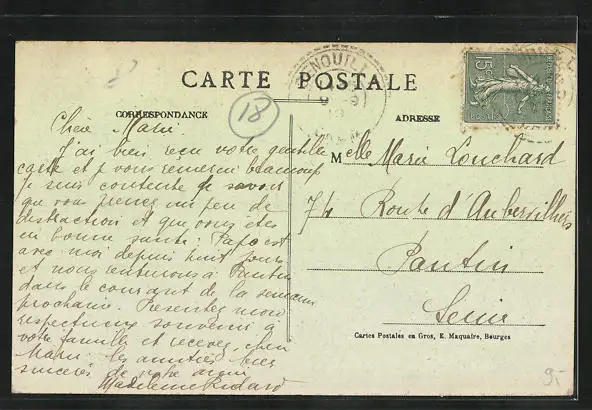 CARTE POSTALE
18
CORRESPONDANCE
ADRESSE
Chère Marie.
J'ai bien reçu votre gentille
carte et vous remercie beaucoup
je suis contente de savoir
que vous prenez un peu de
distraction et que vous êtes
en bonne santé. Papa est
avec moi depuis huit jours
et nous rentrerons à Pantin
dans le courant de la semaine
prochaine. Présentez mon
respectueux souvenir à
votre famille et recevez chère
Marie les amitiés bien
sincères de votre amie
Madeleine Ridard
Melle Marie Louchard
74 Route d'Aubervilliers
Pantin
Seine
Cartes Postales en Gros, E. Maquaire, Bourges
9.-